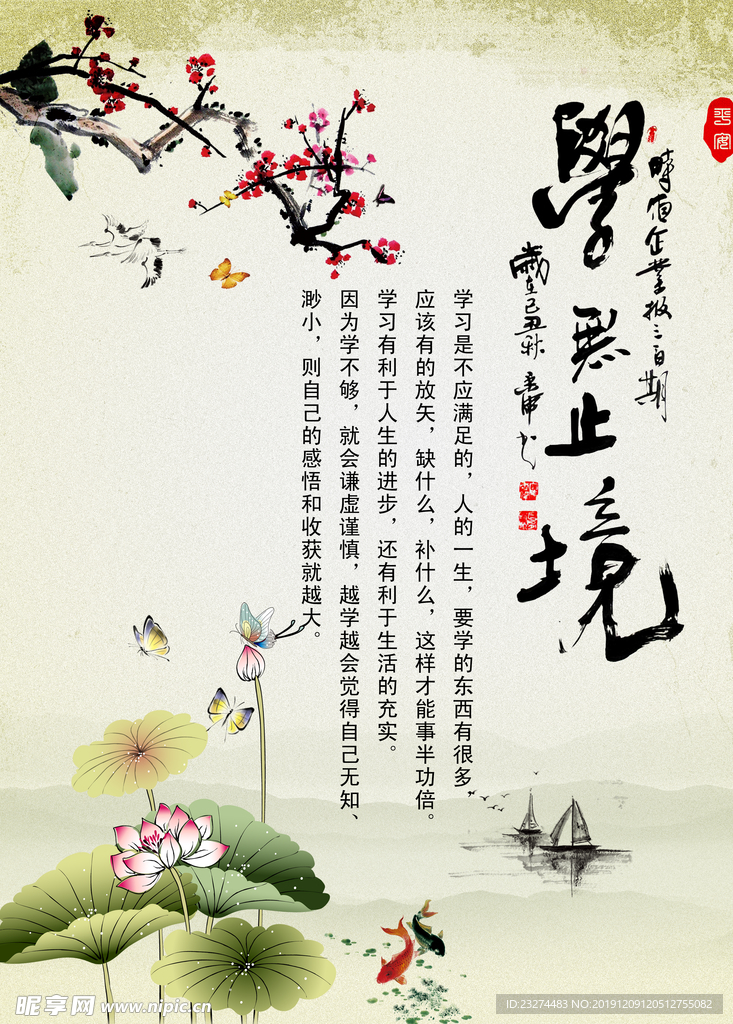 學無止境
時值企業报三百期
歲在己丑秋
学习是不应满足的，人的一生，要学的东西有很多，
应该有的放矢，缺什么，补什么，这样才能事半功倍。
学习有利于人生的进步，还有利于生活的充实。
因为学不够，就会谦虚谨慎，越学越会觉得自己无知、
渺小，则自己的感悟和收获就越大。
昵享网 www.nipic.cn
ID:23274483 NO:20191209120512755082